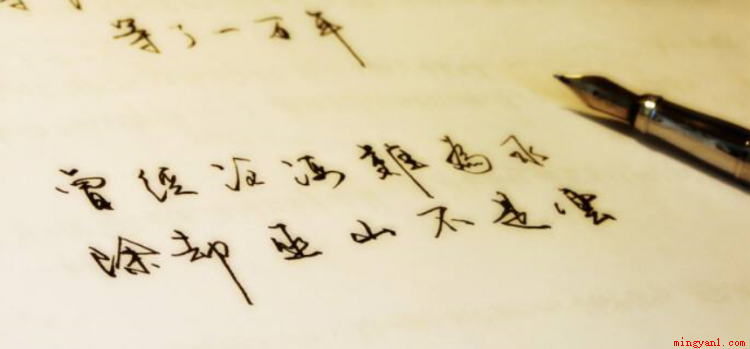 等了一百年
曾經滄海難為水
除却巫山不是雲
mingyan1.com